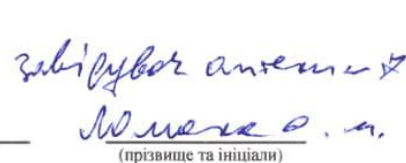 завідувач аптеки 7
О. М.
(прізвище та ініціали)